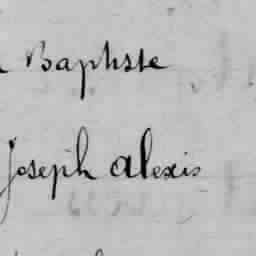 Baptiste
Joseph Alexis